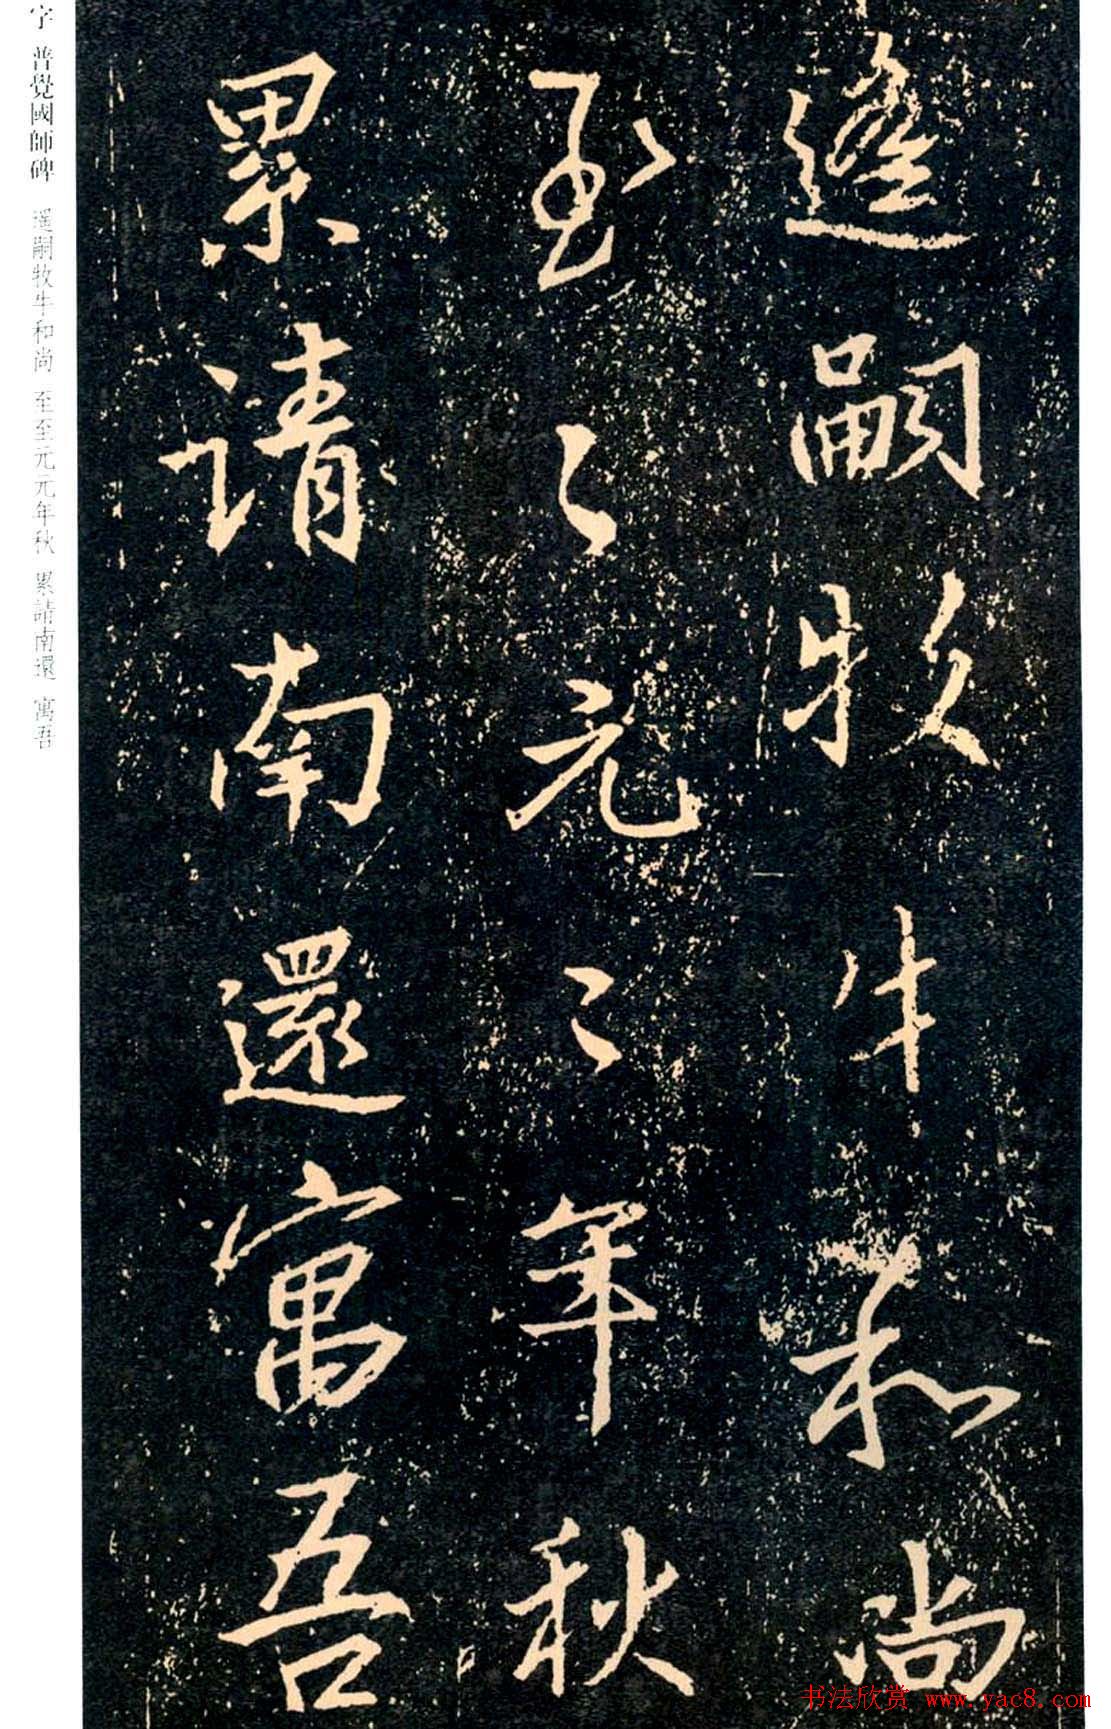 遙嗣牧牛和尚
至〻元〻年秋
累請南還寓吾
字 普覺國師碑 遥嗣牧牛和尚 至至元元年秋 累請南還 寓吾
书法欣赏 www.yac8.com